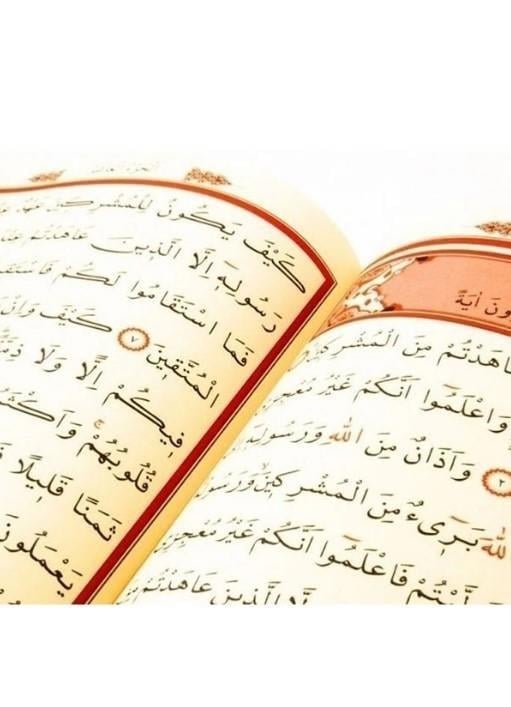 ونَ اٰيَةً
عَاهَدْتُمْ مِنَ الْمُشْرِكٖينَ
وَاعْلَمُٓوا اَنَّكُمْ غَيْرُ مُعْجِزِي
٢ وَاَذَانٌ مِنَ اللّٰهِ وَرَسُولِهٖٓ
اللّٰهَ بَرٖٓيءٌ مِنَ الْمُشْرِكٖينَ وَرَسُولُهُ
فَاعْلَمُٓوا اَنَّكُمْ غَيْرُ مُعْجِزِي
الَّذٖينَ عَاهَدْتُمْ
كَيْفَ يَكُونُ لِلْمُشْرِكٖينَ عَهْدٌ
رَسُولِهٖٓ اِلَّا الَّذٖينَ عَاهَدْتُمْ
فَمَا اسْتَقَامُوا لَكُمْ فَاسْتَقٖيمُوا
الْمُتَّقٖينَ ٧ كَيْفَ وَاِنْ
فٖيكُمْ اِلًّا وَلَا ذِمَّةً
قُلُوبُهُمْ وَاَكْثَرُ
ثَمَنًا قَلٖيلًا
يَعْمَلُونَ